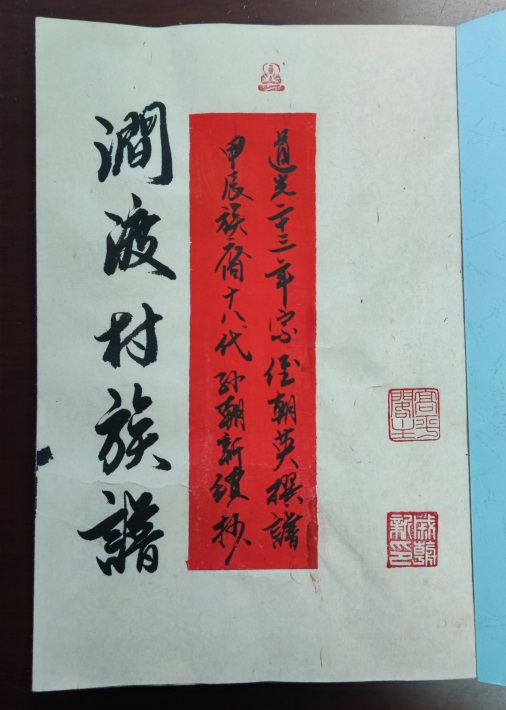 道光二十三年宗侄朝英撰譜
甲辰族裔十八代孙朝新续抄
澗渡村族譜